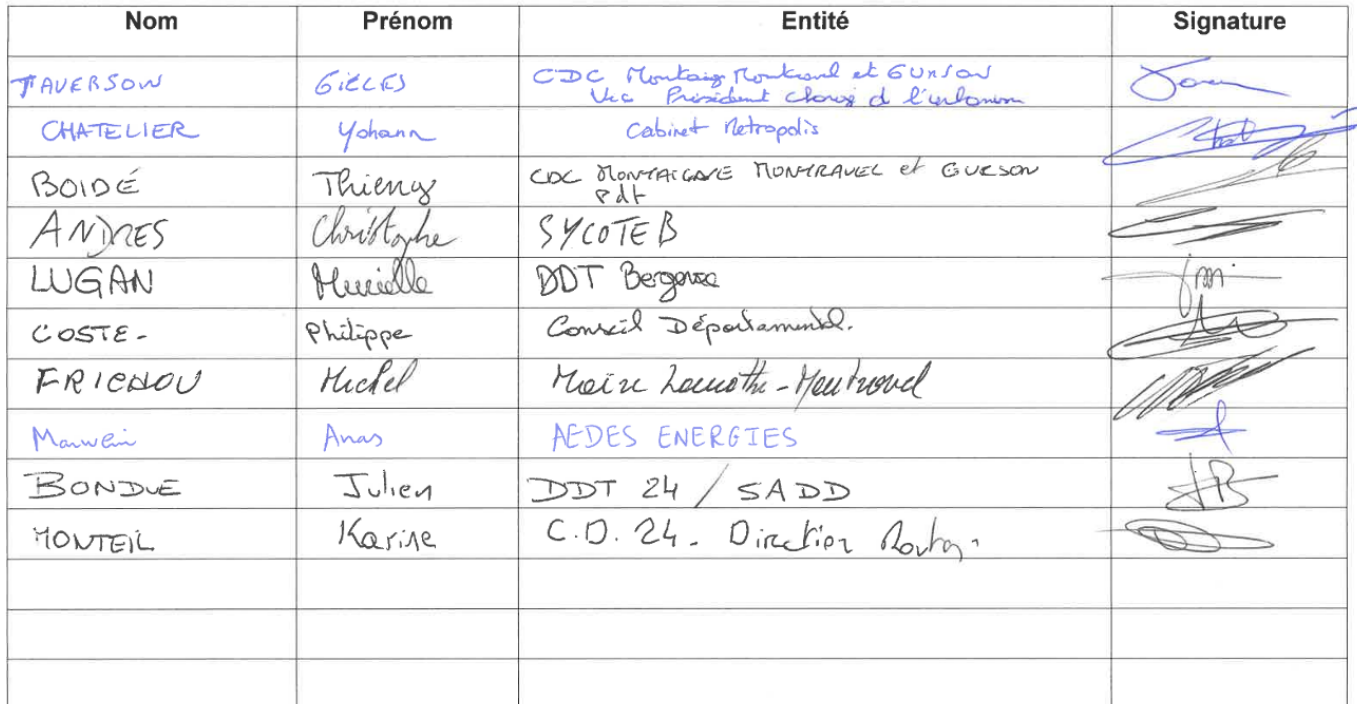 Nom Prénom Entité Signature
TAVERSON GILLES CDC Montaig Montravel et GURSON
Vice Président chargé d l'urbanisme
CHATELIER Yohann Cabinet Metropolis
BOIDÉ Thierry CDC MONTAIGNE MONTRAVEL et GURSON
Pdt
ANDRES Christophe SYCOTEB
LUGAN Murielle DDT Bergerac
COSTE- Philippe Conseil Départemental.
FRICHOU Michel Maire Lamothe-Montravel
Anas AEDES ENERGIES
BONDUE Julien DDT 24 / SADD
MONTEIL Karine C.D. 24. Direction Routes